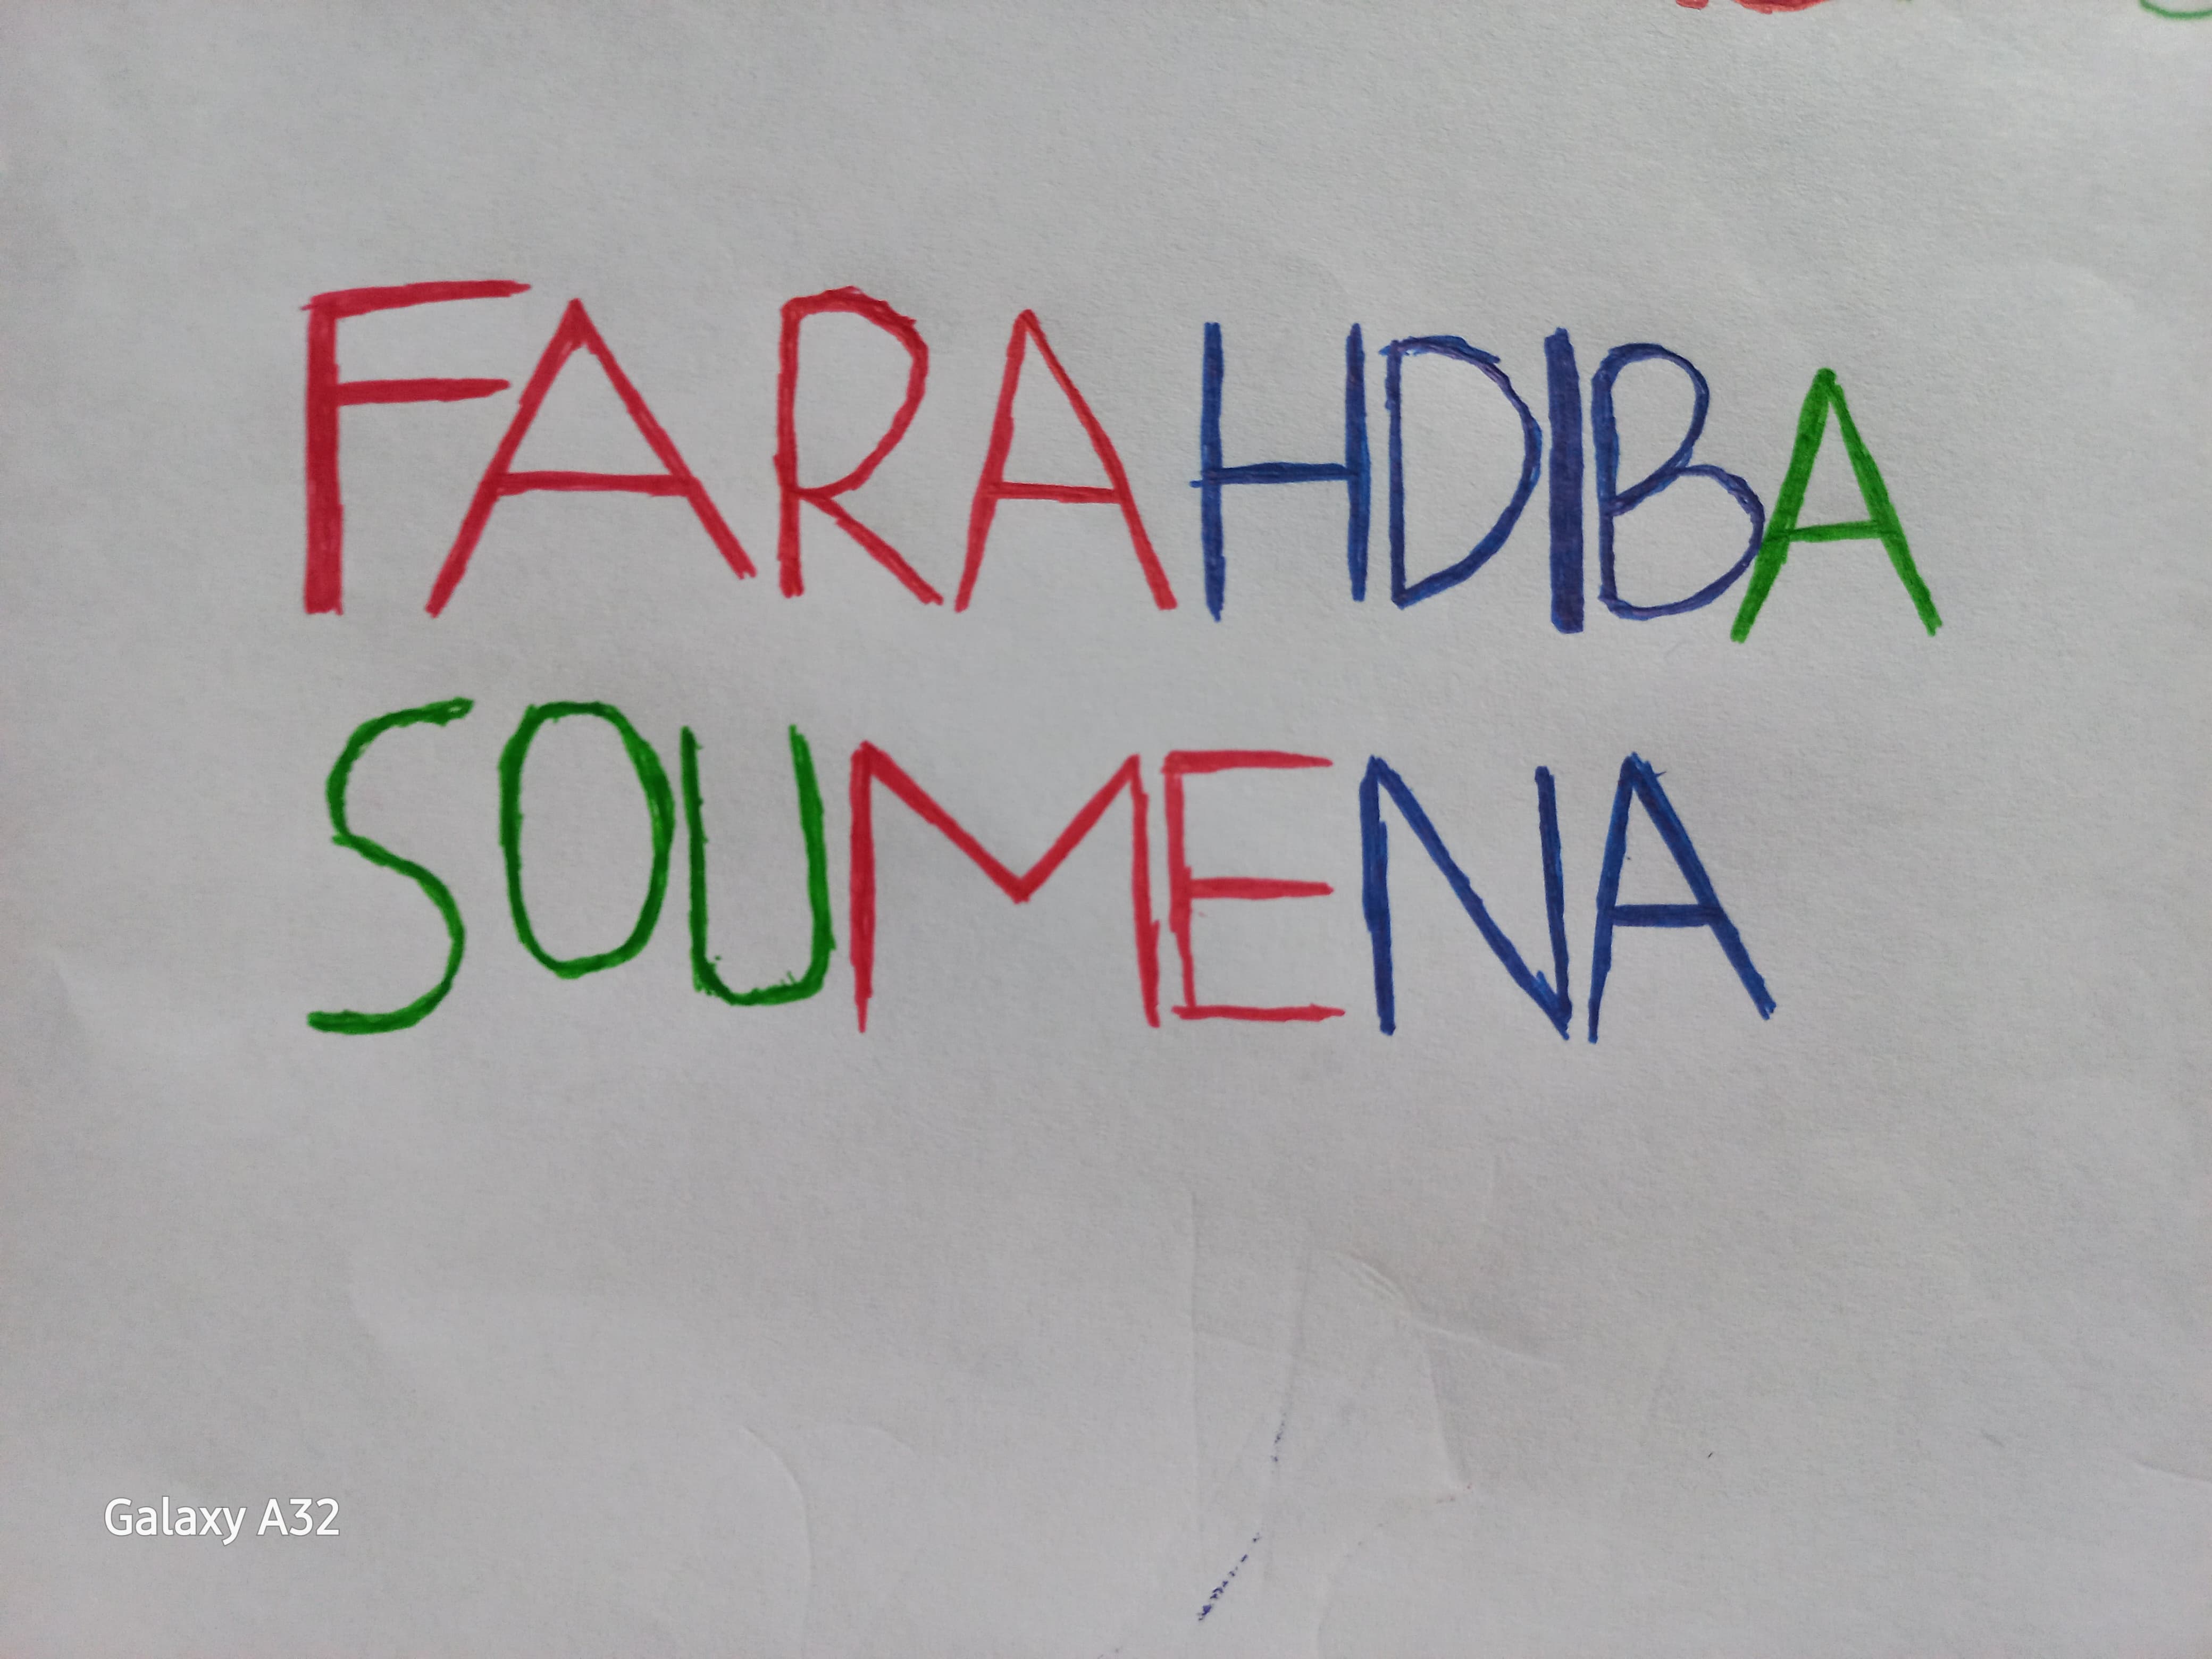 FARAHDIBA
SOUMENA
Galaxy A32